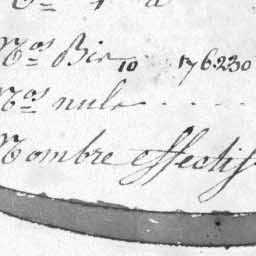 Nos Bis 10 176230
Nos nuls . . . . .
Nombre effectif